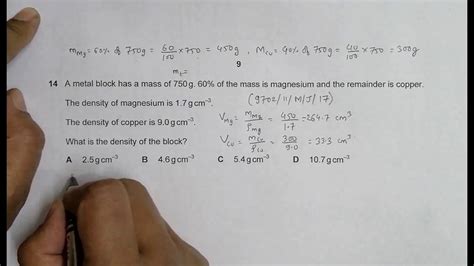 m_Mg = 60% of 750g = 60/100 × 750 = 450g , M_Cu = 40% of 750g = 40/100 × 750 = 300g
m_c=
9
14 A metal block has a mass of 750 g. 60% of the mass is magnesium and the remainder is copper.
The density of magnesium is 1.7 g cm⁻³. (9702/11/M/J/17)
The density of copper is 9.0 g cm⁻³. V_Mg = m_Mg/ρ_Mg = 450/1.7 = 264.7 cm³
What is the density of the block? V_Cu = m_Cu/ρ_Cu = 300/9.0 = 33.3 cm³
A 2.5 g cm⁻³ B 4.6 g cm⁻³ C 5.4 g cm⁻³ D 10.7 g cm⁻³